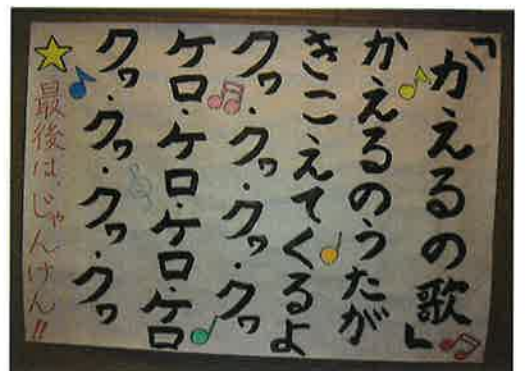 「かえるの歌」
かえるのうたが
きこえてくるよ
クヮ・クヮ・クヮ・クヮ
ケロ・ケロ・ケロ・ケロ
クヮ・クヮ・クヮ・クヮ
最後は、じゃんけん!!